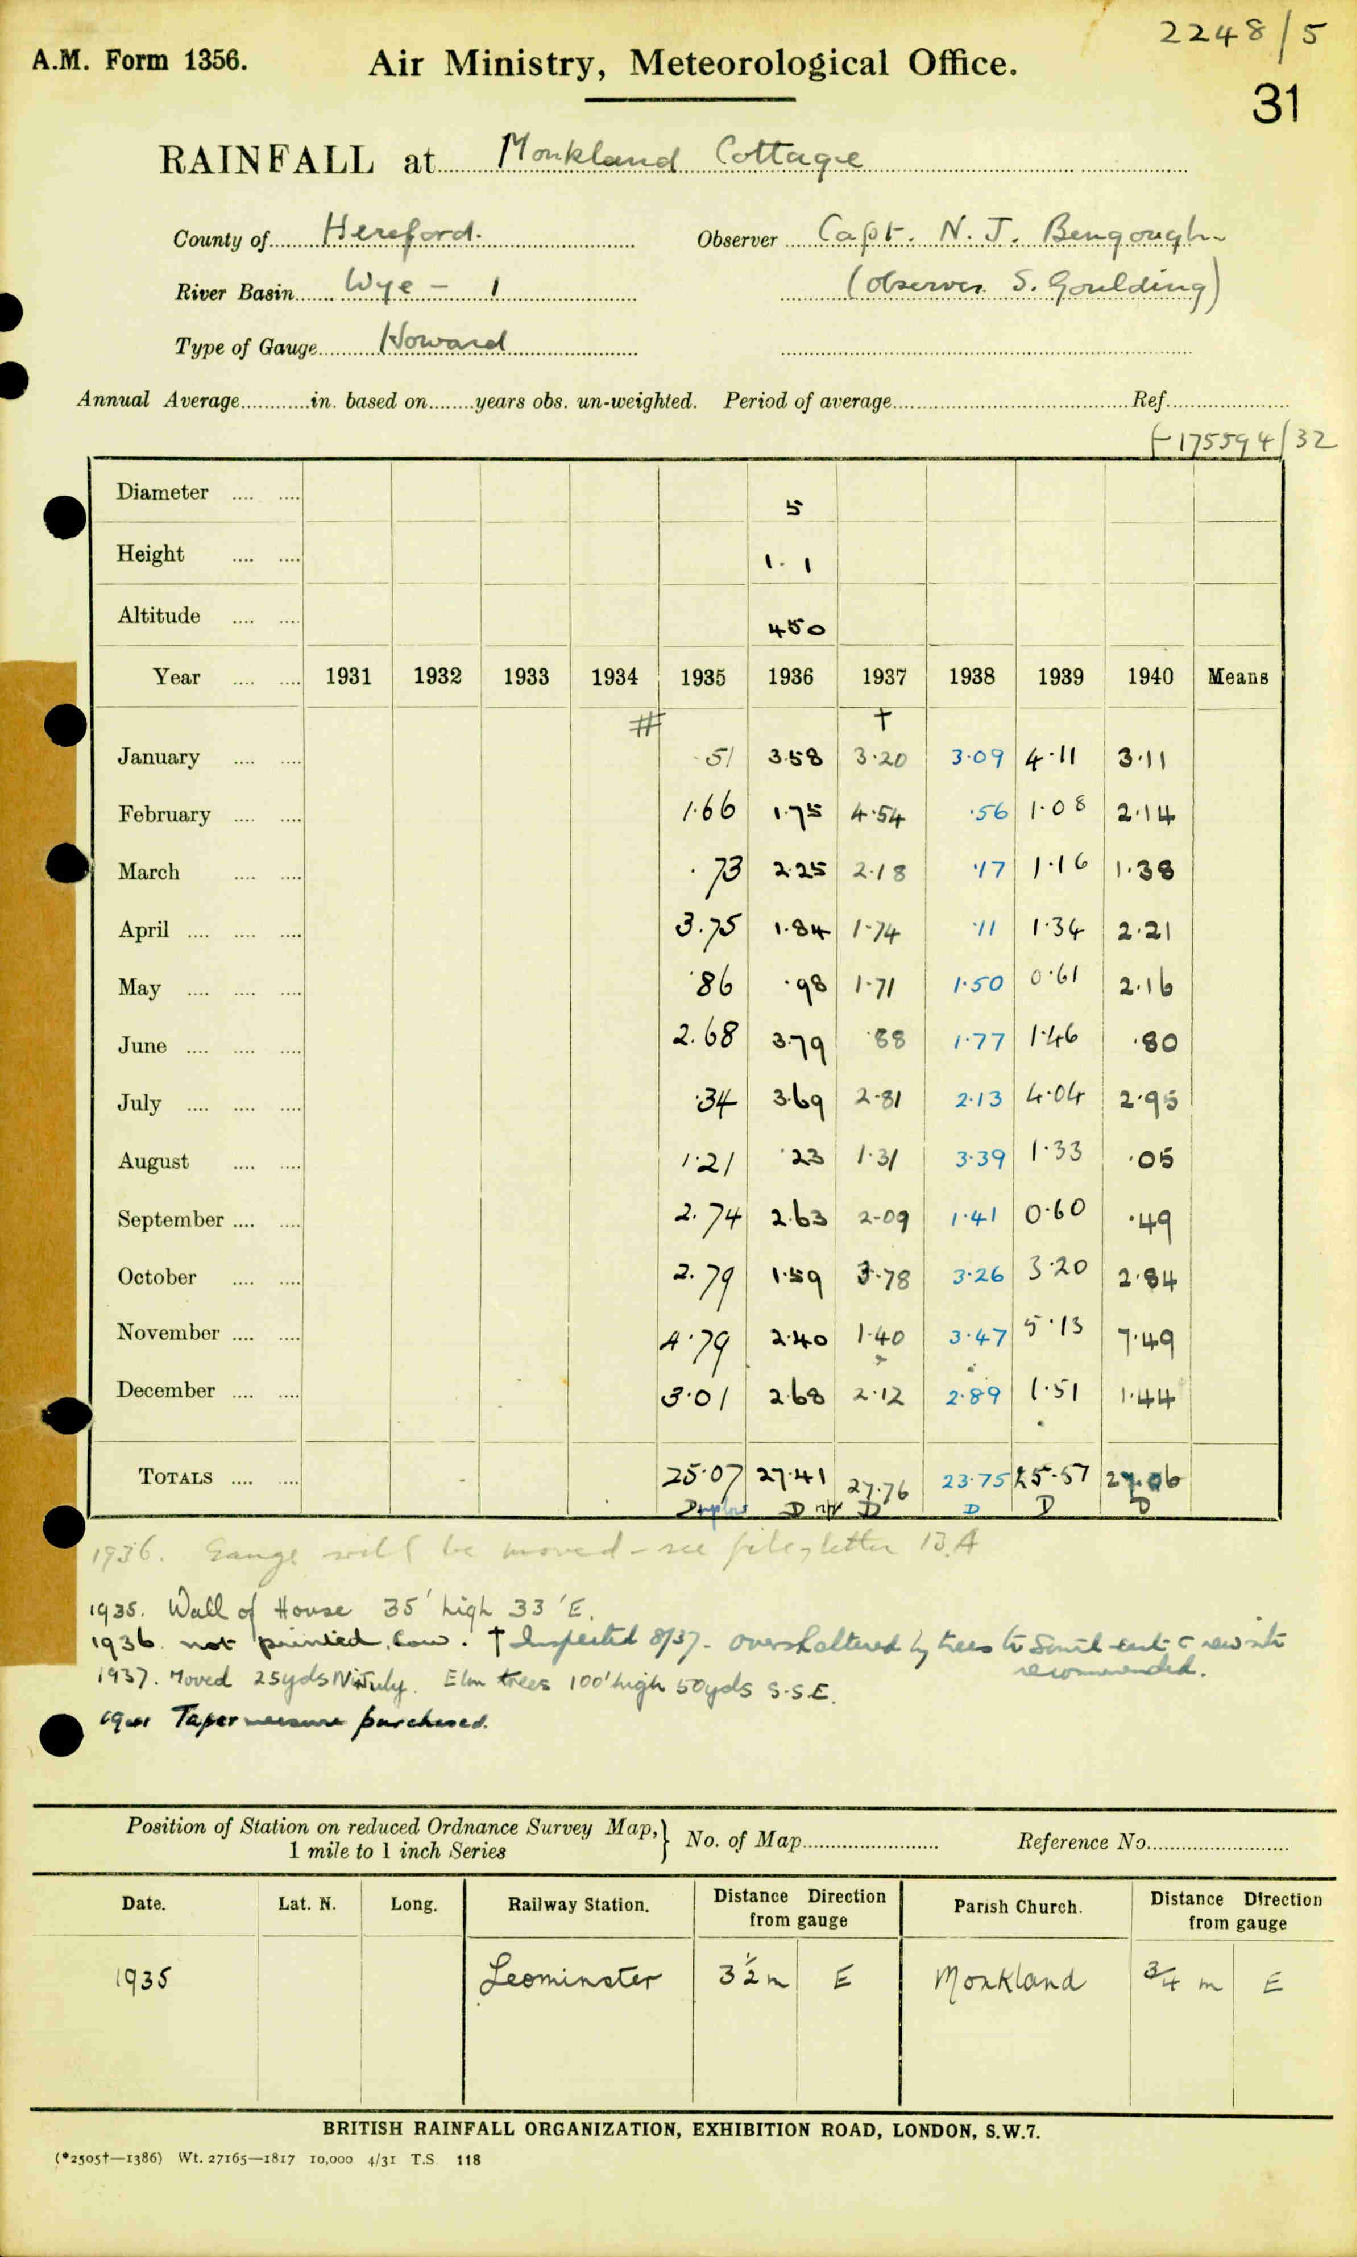 2248/5
A.M. Form 1356. Air Ministry, Meteorological Office.
31
RAINFALL at Monkland Cottage
County of Hereford. Observer Capt. N. J. Bengough
River Basin Wye - 1 (observer S. Goulding)
Type of Gauge Howard
Annual Average in. based on years obs. un-weighted. Period of average Ref.
175594/32
Diameter 5
Height 1.1
Altitude 450
Year 1931 1932 1933 1934 1935 1936 1937 1938 1939 1940 Means
# †
January .51 3.58 3.20 3.09 4.11 3.11
February 1.66 1.75 4.54 .56 1.08 2.14
March .73 2.25 2.18 .17 1.16 1.38
April 3.75 1.84 1.74 .11 1.34 2.21
May .86 .98 1.71 1.50 0.61 2.16
June 2.68 3.79 .88 1.77 1.46 .80
July .34 3.69 2.81 2.13 4.04 2.95
August 1.21 .23 1.31 3.39 1.33 .05
September 2.74 2.63 2.09 1.41 0.60 .49
October 2.79 1.59 3.78 3.26 3.20 2.84
November 4.79 2.40 1.40 3.47 5.13 7.49
December 3.01 2.68 2.12 2.89 1.51 1.44
TOTALS 25.07 27.41 27.76 23.75 25.57 27.06
D D D D D
1936. Gauge will be moved - see file, letter 13.A
1935. Wall of House 35' high 33' E.
1936. not printed, low. † Inspected 8/37 - oversheltered by trees to South east new site
recommended.
1937. Moved 25yds N July. Elm trees 100' high 50yds S.S.E.
Taper measure purchased.
Position of Station on reduced Ordnance Survey Map, } No. of Map Reference No.
1 mile to 1 inch Series
Date. Lat. N. Long. Railway Station. Distance Direction from gauge Parish Church. Distance Direction from gauge
1935 Leominster 3½ m E Monkland ¾ m E
BRITISH RAINFALL ORGANIZATION, EXHIBITION ROAD, LONDON, S.W.7.
(*2505†—1386) Wt. 27165—1817 10,000 4/31 T.S. 118